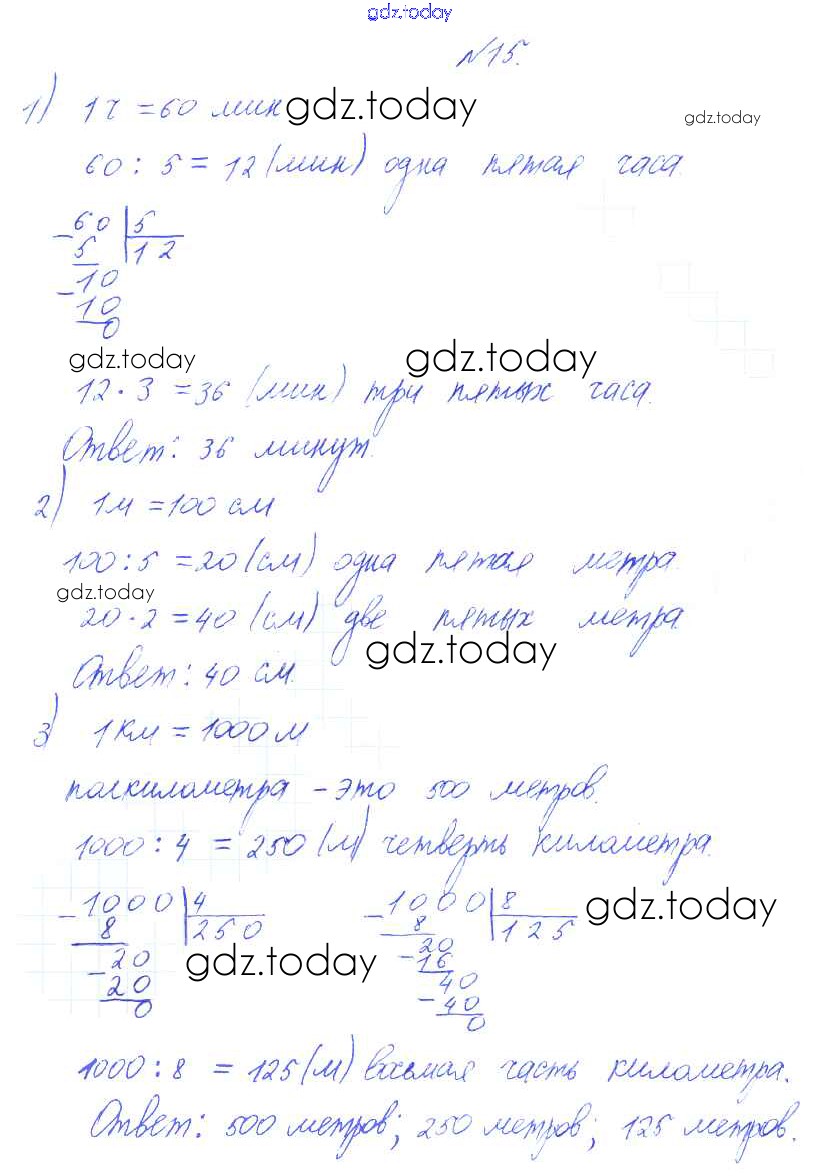 gdz.today
№15.
1) 1ч = 60 мин gdz.today
gdz.today
60 : 5 = 12 (мин) одна пятая часа.
- 60 | 5
5 | 12
- 10
10
0
gdz.today gdz.today
12 · 3 = 36 (мин) три пятых часа.
Ответ: 36 минут.
2) 1м = 100 см
100 : 5 = 20 (см) одна пятая метра.
gdz.today
20 · 2 = 40 (см) две пятых метра.
gdz.today
Ответ: 40 см.
3) 1км = 1000 м
полкилометра - это 500 метров.
1000 : 4 = 250 (м) четверть километра.
- 1000 | 4 - 1000 | 8 gdz.today
8 | 250 8 | 125
- 20 20
20 - 16
0 40
- 40
0
gdz.today
1000 : 8 = 125 (м) восьмая часть километра.
Ответ: 500 метров; 250 метров; 125 метров.